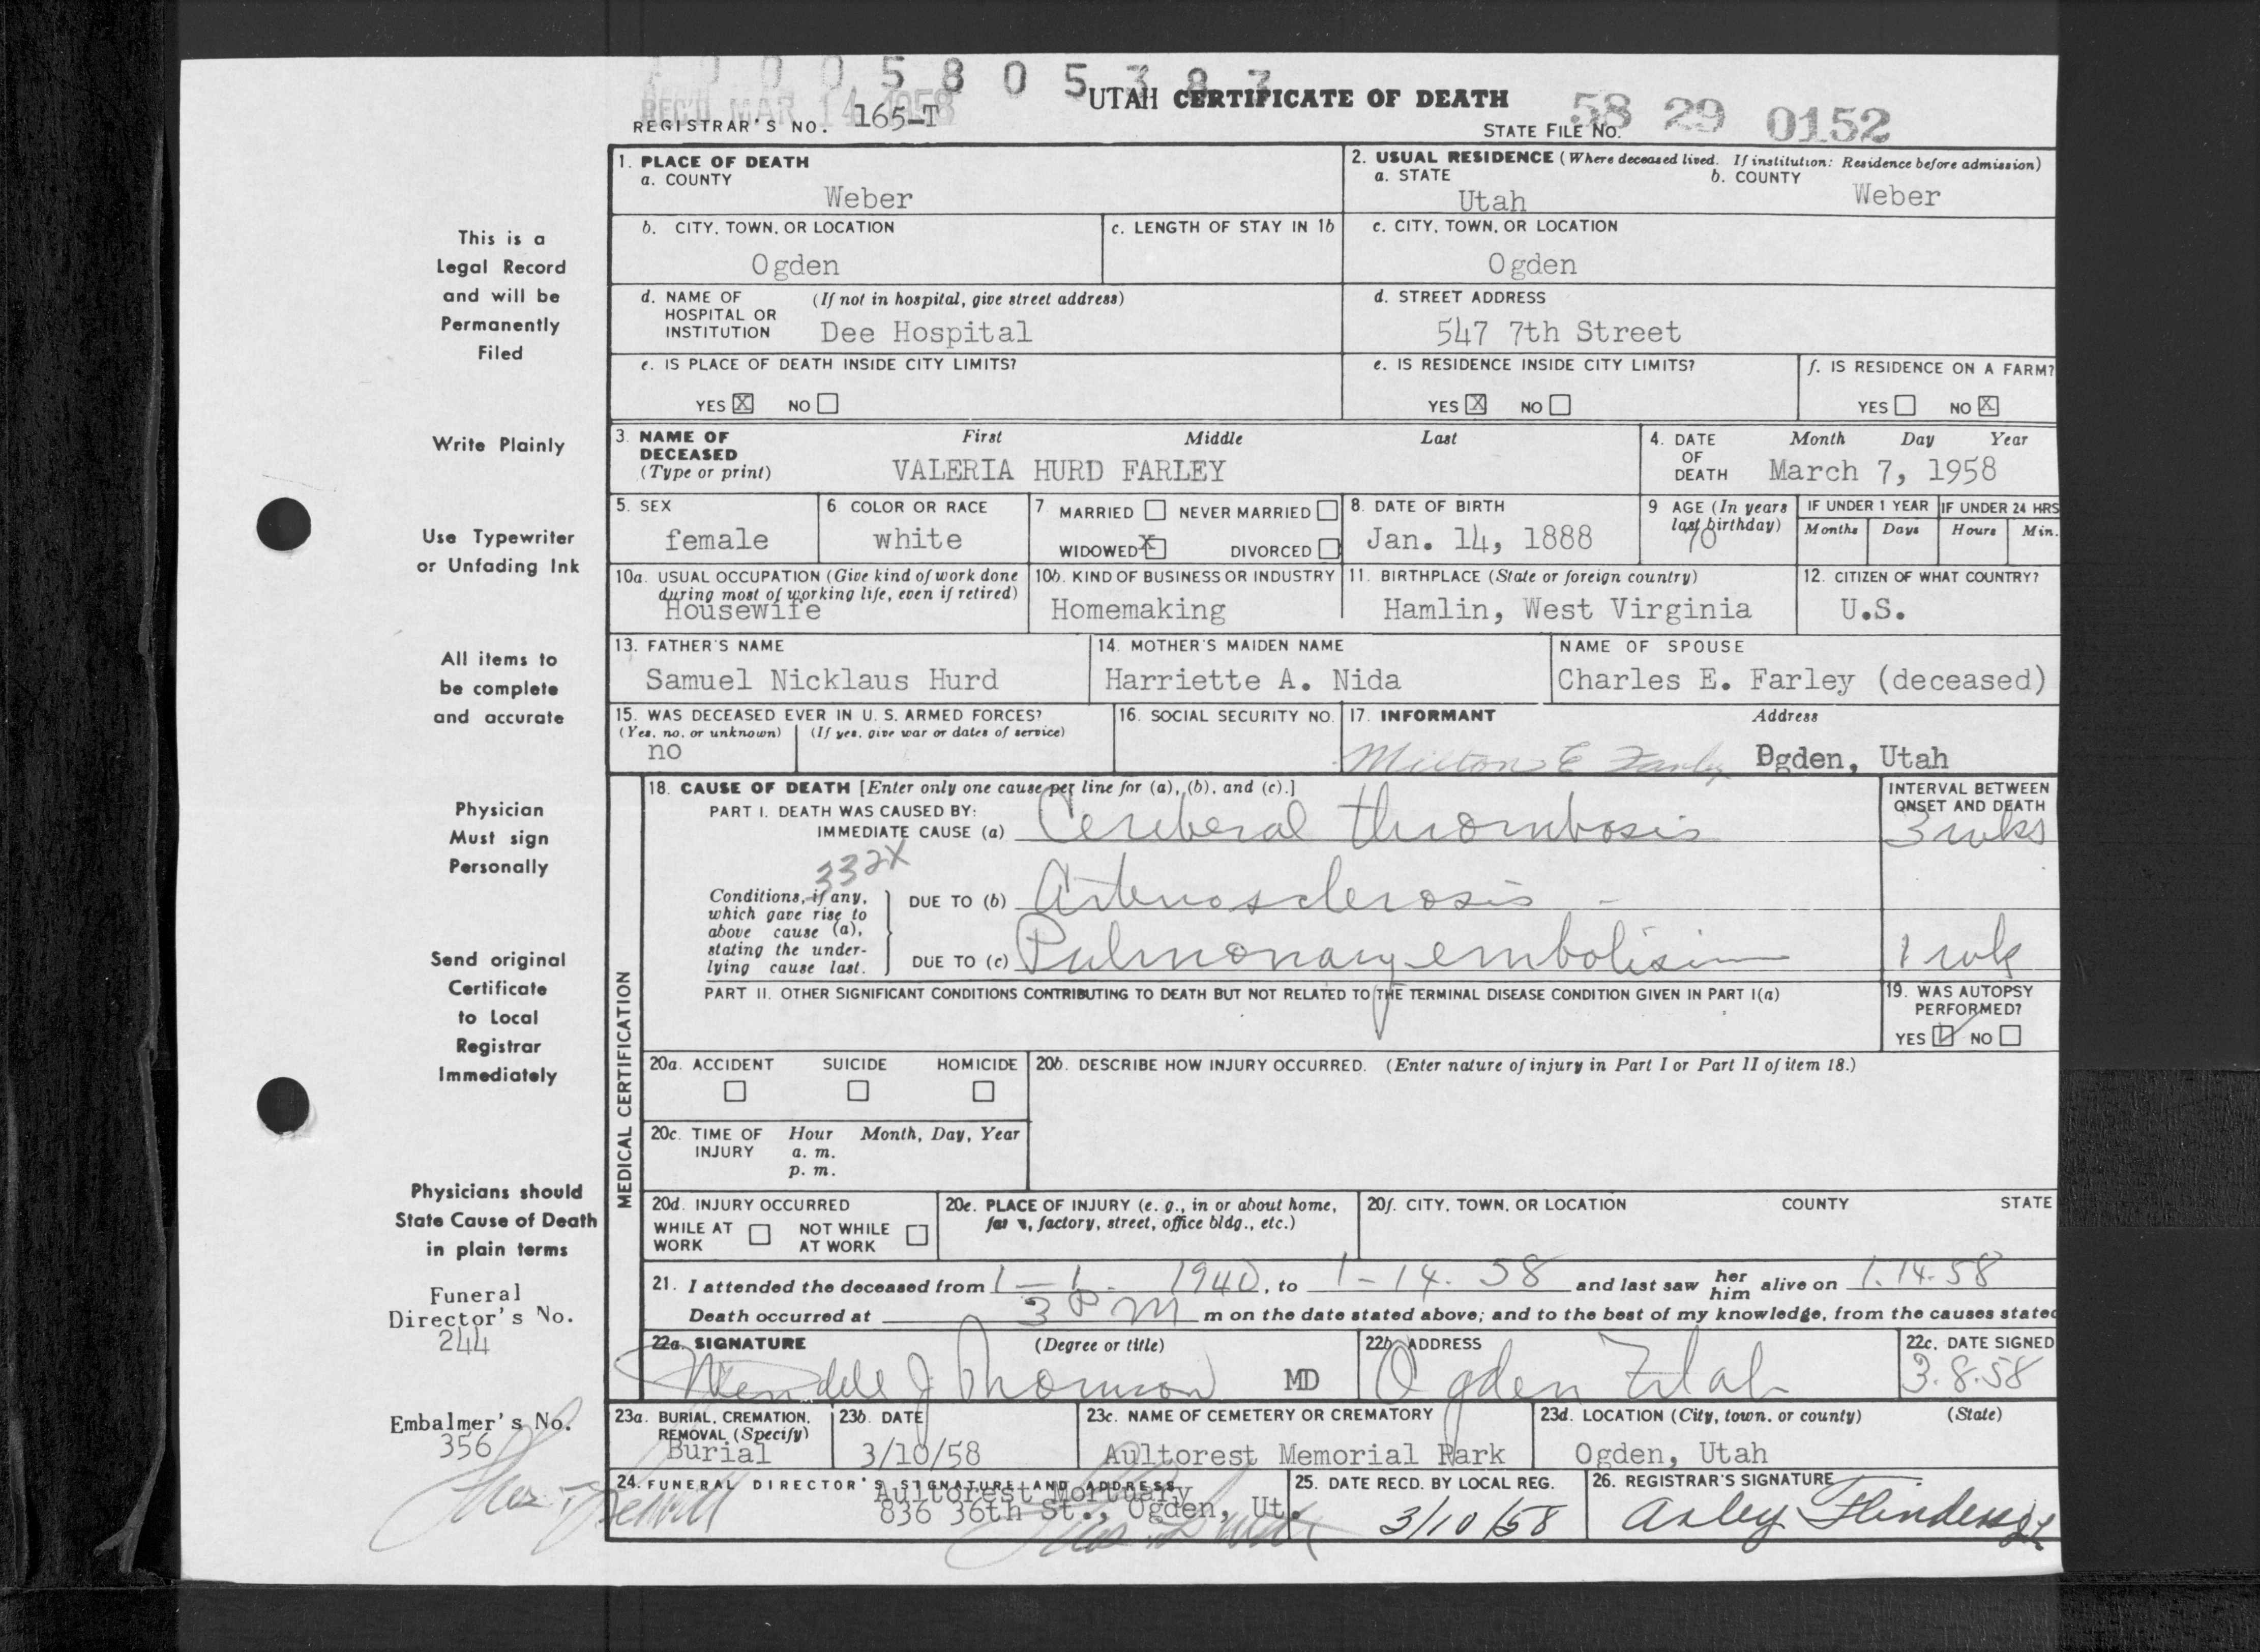 REC'D MAR 14 1958
REGISTRAR'S NO. 165-T
UTAH CERTIFICATE OF DEATH
STATE FILE NO. 58 29 0152
This is a
Legal Record
and will be
Permanently
Filed
Write Plainly
Use Typewriter
or Unfading Ink
All items to
be complete
and accurate
Physician
Must sign
Personally
Send original
Certificate
to Local
Registrar
Immediately
Physicians should
State Cause of Death
in plain terms
Funeral
Director's No.
244
Embalmer's No.
356
1. PLACE OF DEATH
a. COUNTY
Weber
2. USUAL RESIDENCE (Where deceased lived. If institution: Residence before admission)
a. STATE
Utah
b. COUNTY
Weber
b. CITY, TOWN, OR LOCATION
Ogden
c. LENGTH OF STAY IN 1b
c. CITY, TOWN, OR LOCATION
Ogden
d. NAME OF HOSPITAL OR INSTITUTION
(If not in hospital, give street address)
Dee Hospital
d. STREET ADDRESS
547 7th Street
e. IS PLACE OF DEATH INSIDE CITY LIMITS?
YES X NO
e. IS RESIDENCE INSIDE CITY LIMITS?
YES X NO
f. IS RESIDENCE ON A FARM?
YES NO X
3. NAME OF DECEASED
(Type or print)
First Middle Last
VALERIA HURD FARLEY
4. DATE OF DEATH
Month Day Year
March 7, 1958
5. SEX
female
6 COLOR OR RACE
white
7 MARRIED NEVER MARRIED
WIDOWED X DIVORCED
8. DATE OF BIRTH
Jan. 14, 1888
9 AGE (In years last birthday)
70
IF UNDER 1 YEAR
Months Days
IF UNDER 24 HRS
Hours Min.
10a. USUAL OCCUPATION (Give kind of work done during most of working life, even if retired)
Housewife
10b. KIND OF BUSINESS OR INDUSTRY
Homemaking
11. BIRTHPLACE (State or foreign country)
Hamlin, West Virginia
12. CITIZEN OF WHAT COUNTRY?
U.S.
13. FATHER'S NAME
Samuel Nicklaus Hurd
14. MOTHER'S MAIDEN NAME
Harriette A. Nida
NAME OF SPOUSE
Charles E. Farley (deceased)
15. WAS DECEASED EVER IN U. S. ARMED FORCES?
(Yes, no, or unknown) (If yes, give war or dates of service)
no
16. SOCIAL SECURITY NO.
17. INFORMANT Address
Milton E Farley Ogden, Utah
MEDICAL CERTIFICATION
18. CAUSE OF DEATH [Enter only one cause per line for (a), (b), and (c).]
PART I. DEATH WAS CAUSED BY:
IMMEDIATE CAUSE (a) Cereberal thrombosis
INTERVAL BETWEEN ONSET AND DEATH
3 wks
332X
Conditions, if any, which gave rise to above cause (a), stating the underlying cause last.
DUE TO (b) Arteriosclerosis -
DUE TO (c) Pulmonary embolisim
1 wk
PART II. OTHER SIGNIFICANT CONDITIONS CONTRIBUTING TO DEATH BUT NOT RELATED TO THE TERMINAL DISEASE CONDITION GIVEN IN PART I(a)
19. WAS AUTOPSY PERFORMED?
YES NO
20a. ACCIDENT SUICIDE HOMICIDE
20b. DESCRIBE HOW INJURY OCCURRED. (Enter nature of injury in Part I or Part II of item 18.)
20c. TIME OF INJURY
Hour Month, Day, Year
a. m.
p. m.
20d. INJURY OCCURRED
WHILE AT WORK NOT WHILE AT WORK
20e. PLACE OF INJURY (e. g., in or about home, farm, factory, street, office bldg., etc.)
20f. CITY, TOWN, OR LOCATION COUNTY STATE
21. I attended the deceased from 1-1- 1940, to 1-14-58 and last saw her him alive on 1.14-58
Death occurred at 3 PM m on the date stated above; and to the best of my knowledge, from the causes stated
22a. SIGNATURE (Degree or title)
Wendell J Thomson MD
22b. ADDRESS
Ogden Utah
22c. DATE SIGNED
3.8.58
23a. BURIAL, CREMATION, REMOVAL (Specify)
Burial
23b. DATE
3/10/58
23c. NAME OF CEMETERY OR CREMATORY
Aultorest Memorial Park
23d. LOCATION (City, town, or county) (State)
Ogden, Utah
24. FUNERAL DIRECTOR'S SIGNATURE AND ADDRESS
Aultorest Mortuary
836 36th St., Ogden, Ut.
25. DATE RECD. BY LOCAL REG.
3/10/58
26. REGISTRAR'S SIGNATURE
Arley Flinders